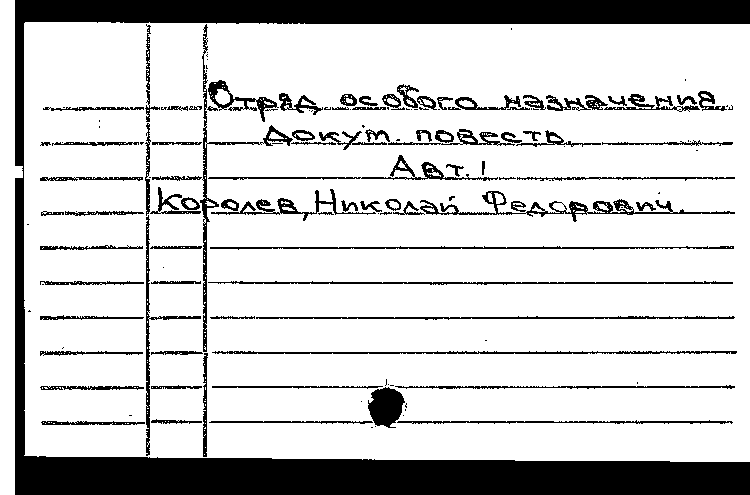 Отряд особого назначения.
Докум. повесть.
Авт.!
Королев, Николай Федорович.